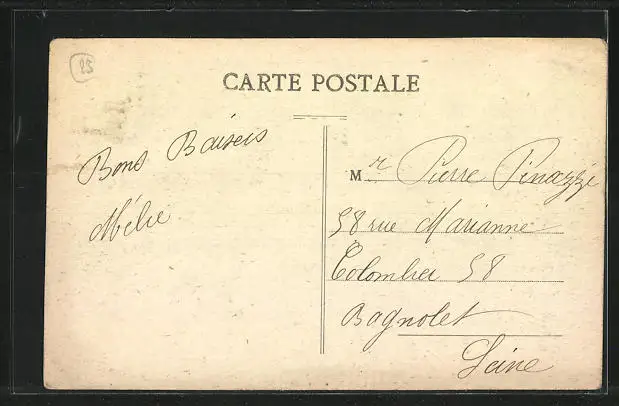 25
CARTE POSTALE
Bons Baisers
Mélie
Mr Pierre Pinazzi
58 rue Marianne
Colombier 58
Bagnolet
Seine